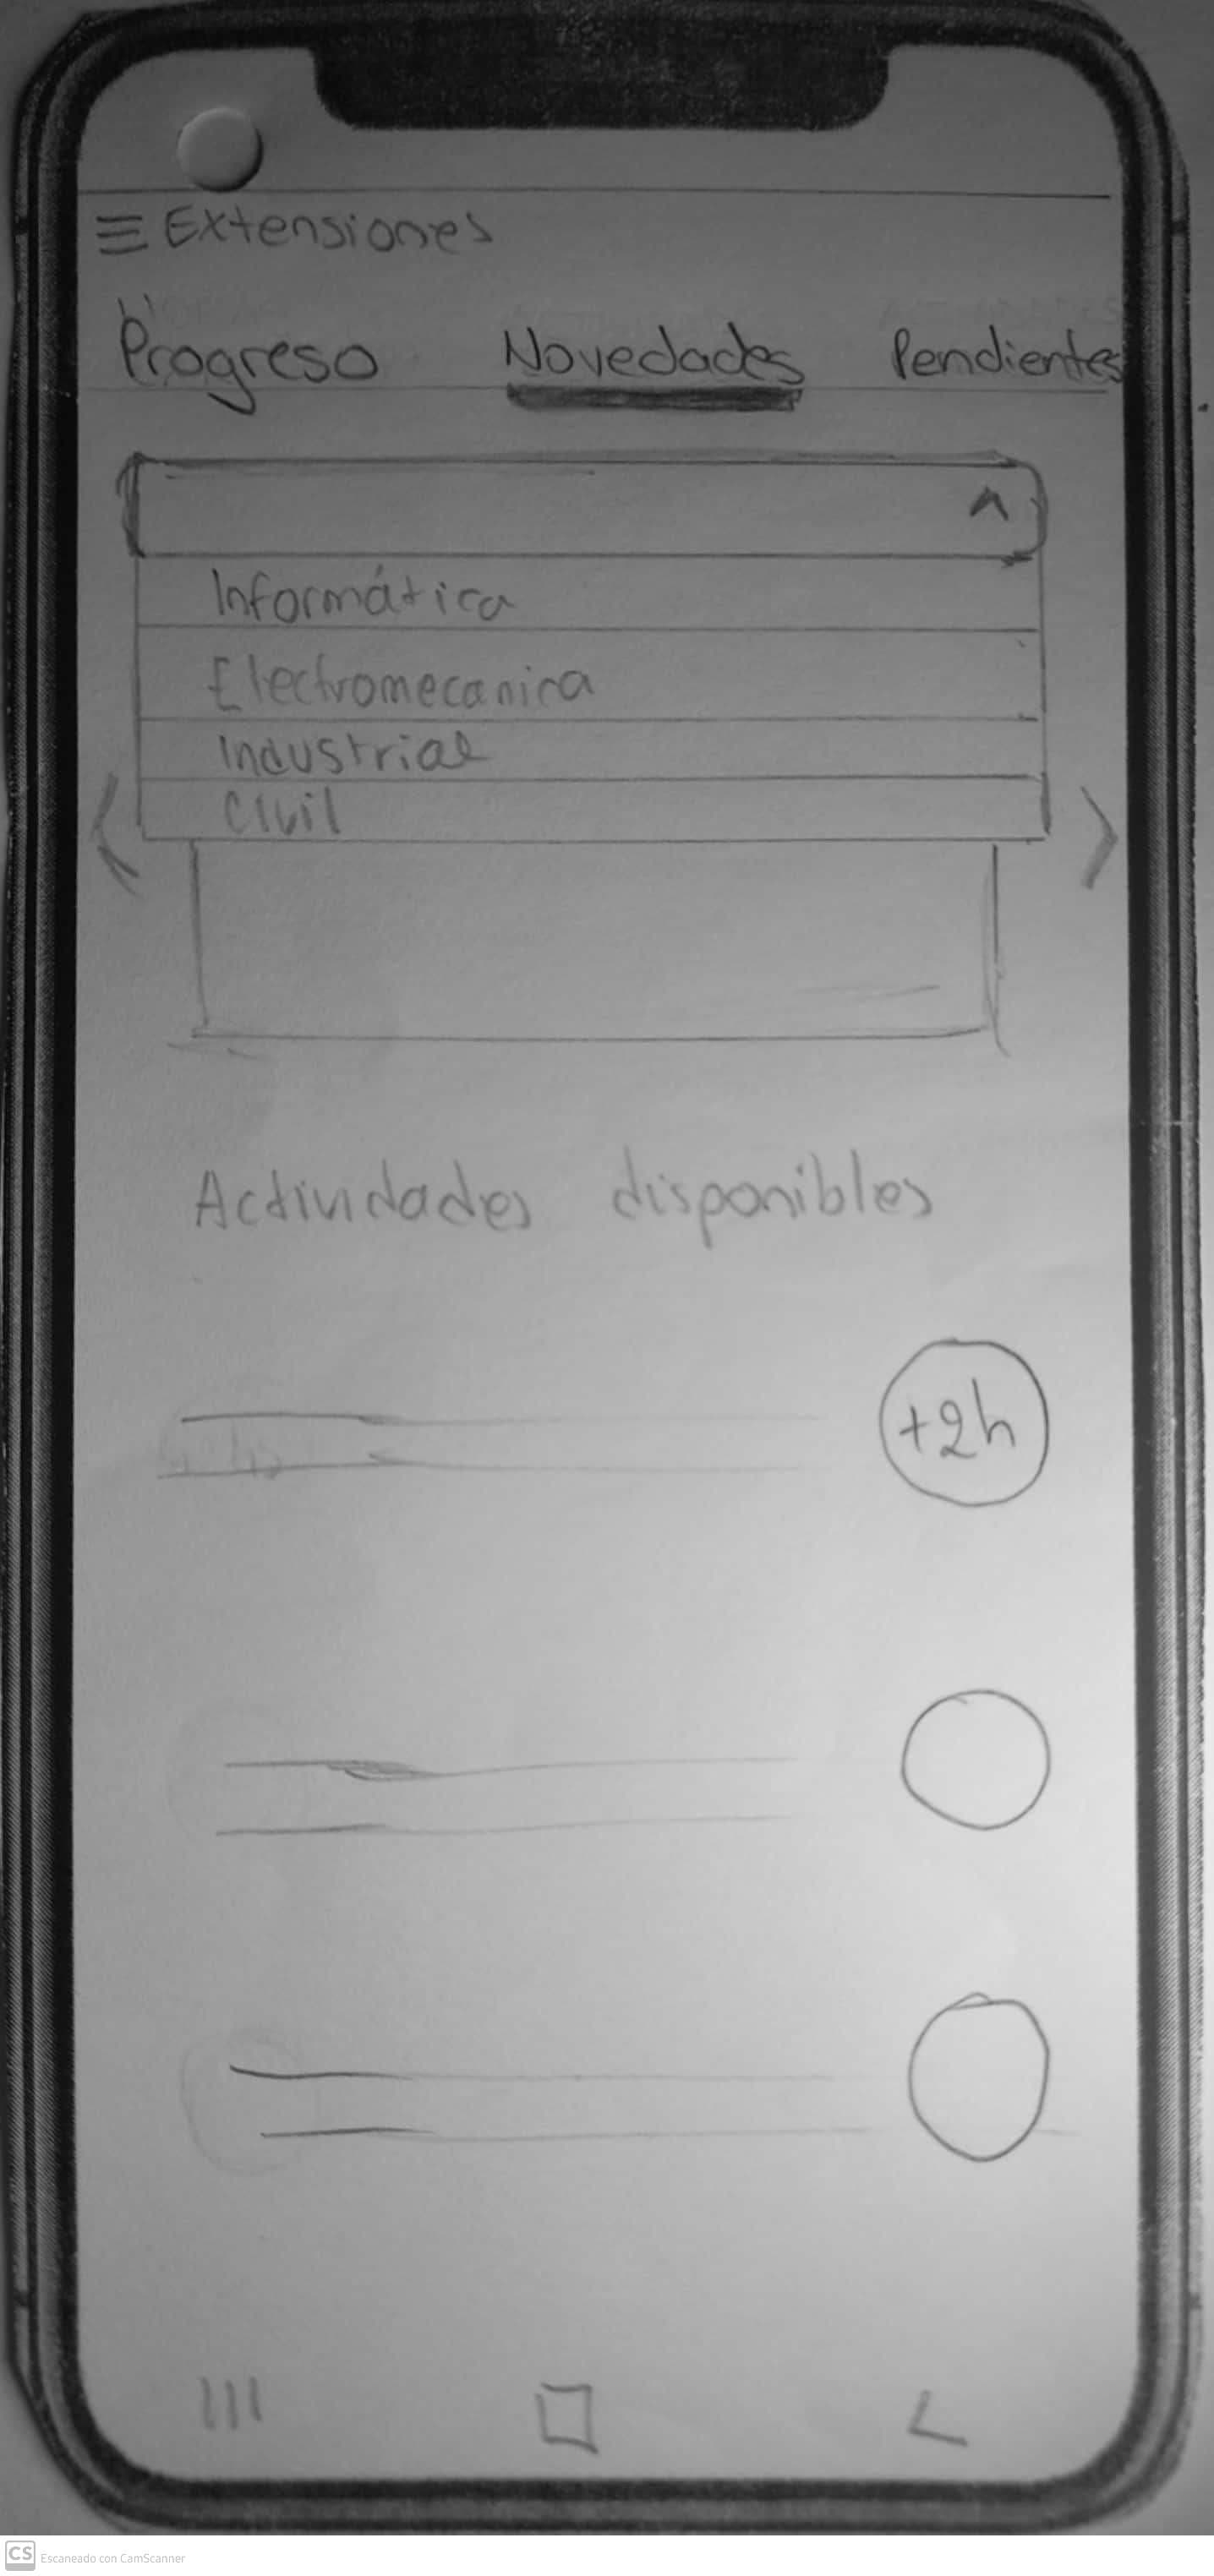 Extensiones
Progreso Novedades Pendientes
Informática
Electromecanica
Industrial
Civil
Actividades disponibles
+2h
CS Escaneado con CamScanner